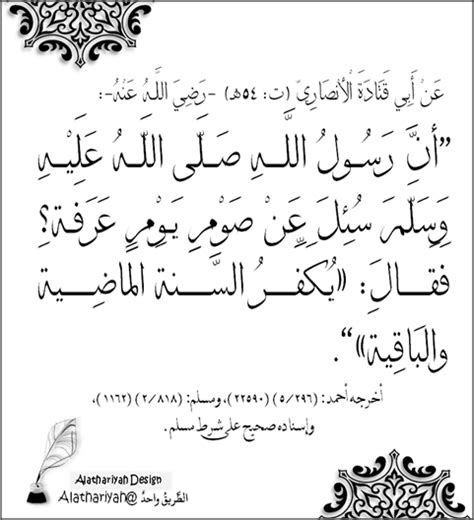 عَنْ أَبِي قَتَادَةَ الْأَنْصَارِيِّ (ت: ٥٤هـ) -رَضِيَ اللَّهُ عَنْهُ-:
”أَنَّ رَسُولَ اللَّهِ صَلَّى اللَّهُ عَلَيْهِ
وَسَلَّمَ سُئِلَ عَنْ صَوْمِ يَوْمِ عَرَفَةَ؟
فَقَالَ: «يُكَفِّرُ السَّنَةَ الْمَاضِيَةَ
وَالبَاقِيَةَ»“.
أخرجه أحمد: (٥/٢٩٦) (٢٢٥٩٠)، ومسلم: (٢/٨١٨) (١١٦٢)،
وإسناده صحيح على شرط مسلم.
Alathariyah Design
الطَّرِيقُ وَاحِدٌ @Alathariyah